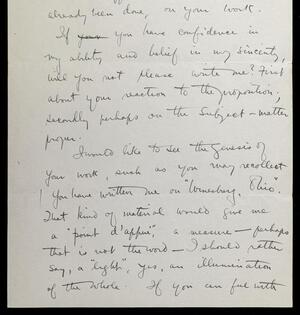 already been done, on your work.
If your you have confidence in
my ability and belief in my sincerity,
will you not please write me? First
about your reaction to the proposition;
secondly perhaps on the subject-matter
proper.
I would like to see the Genesis of
your work, such as you may recollect
! You have written me on "Winesburg, Ohio".
That kind of material would give me
a "point d'appui", a measure — perhaps
that is not the word — I should rather
say, a "light", yes, an illumination
of the whole. If you can feel with